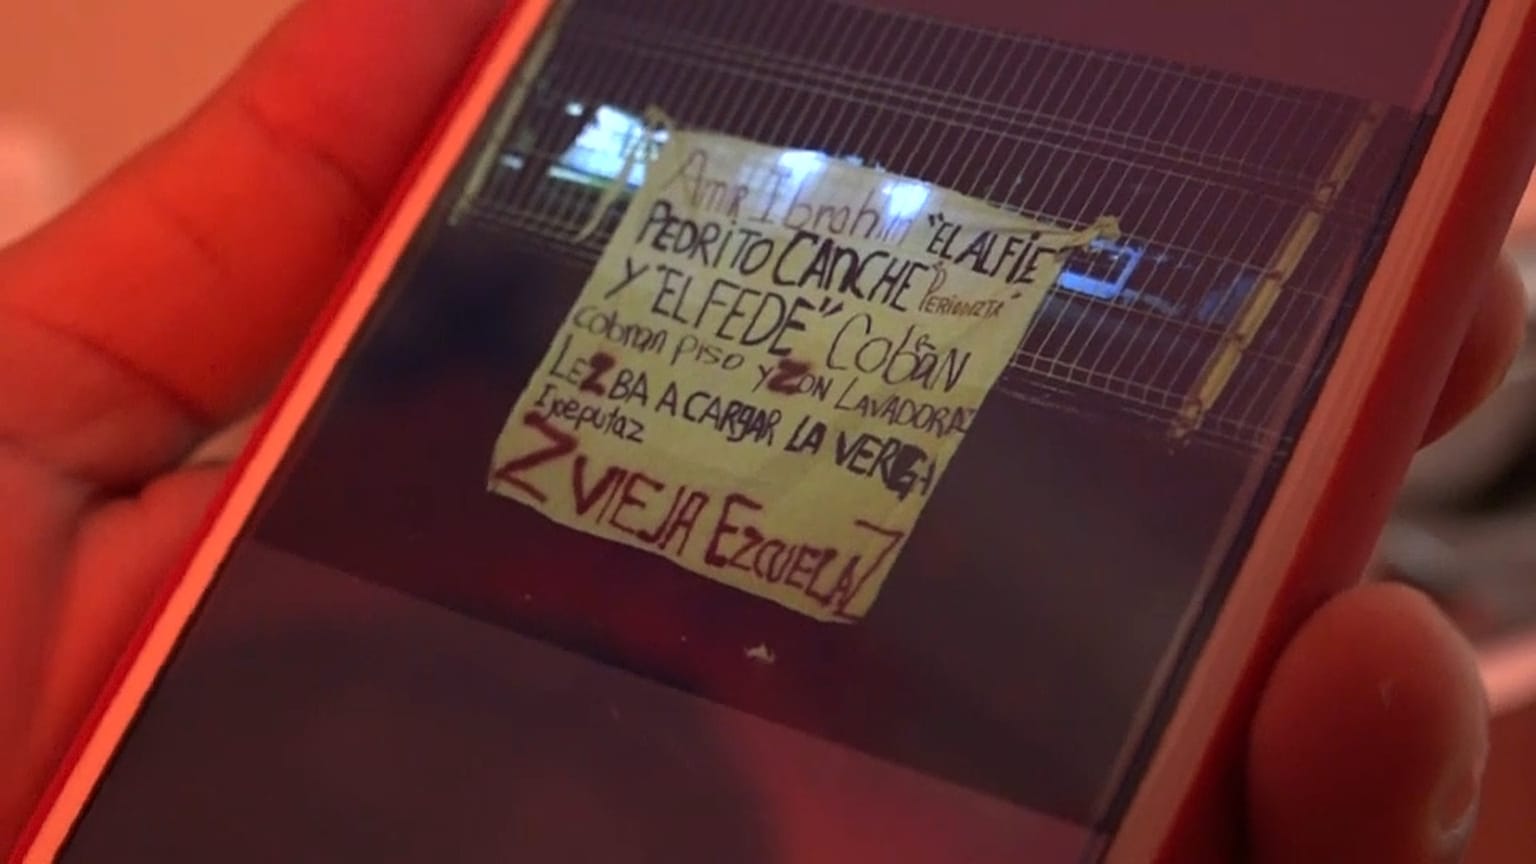 Amir Ibrahim "EL ALFIE"
PEDRITO CANCHE "PERIODIZTA"
Y "EL FEDE" CobRAN
cobran piso y ZON LAVADORAZ
LEZ BA A CARGAR LA VERGA
Ijoeputaz
Z VIEJA EZCUELA Z